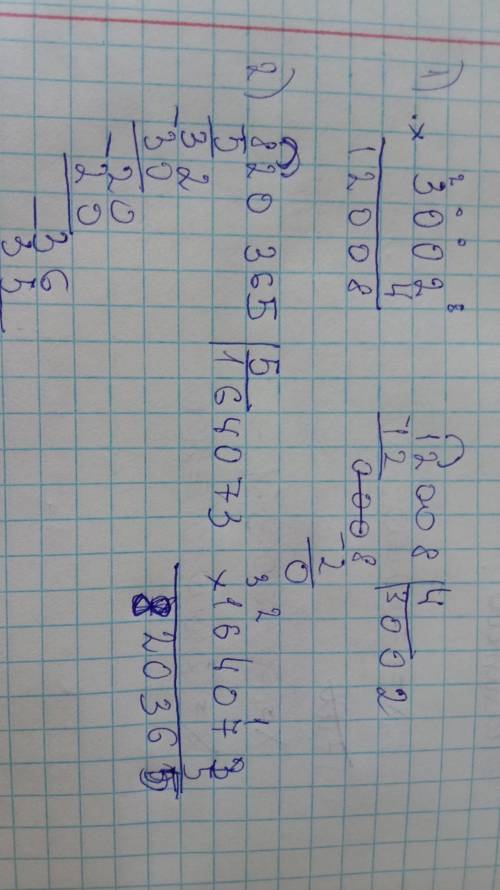 1)
2 0 0 8
× 3002
4
12008
12008 | 4
-12 | 3002
008
-2
0
2)
820 365 | 5
5 | 164073
-32
30
-20
20
-36
35
3 2 1
×164073
5
820365